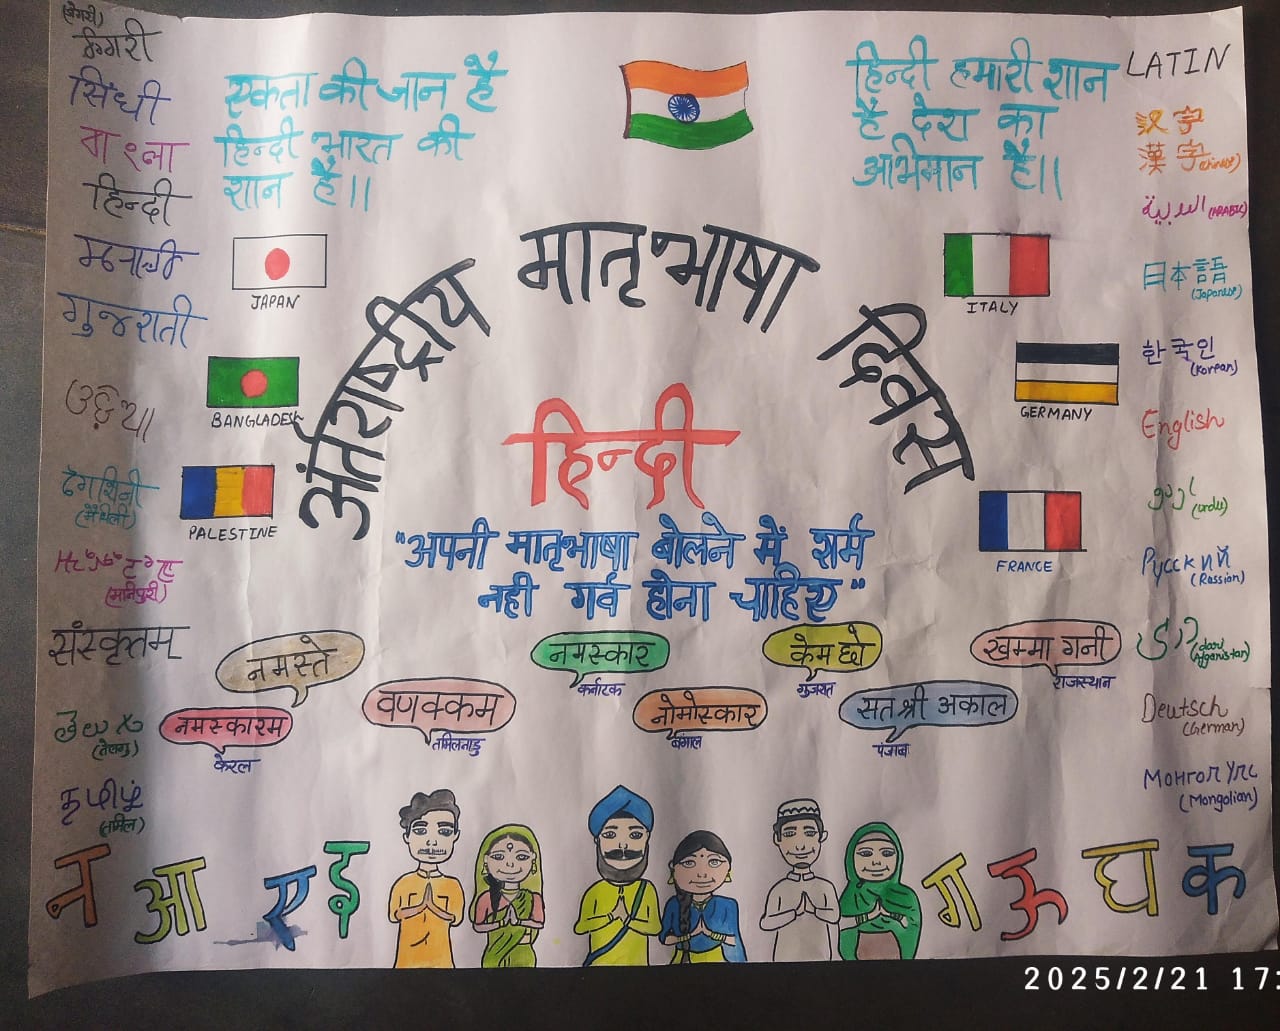 (डोगरी)
डोगरी
सिंधी
বাংলা
हिन्दी
मराठी
गुजराती
(मैथिली)
(मनिपुरी)
संस्कृतम्
(तेलगु)
தமிழ்
(तमिल)
एकता की जान है
हिन्दी भारत की
शान है।।
हिन्दी हमारी शान
है देश का
अभिमान है।।
LATIN
汉字
漢字 (chinese)
العربية (ARABIC)
日本語
(Japanese)
한국인
(Korean)
English
اردو (urdu)
Русский
(Rassian)
دری (dari
Afganistan)
Deutsch
(German)
Монгол
(Mongolian)
JAPAN
BANGLADESH
PALESTINE
ITALY
GERMANY
FRANCE
अंतराष्ट्रीय मातृभाषा दिवस
हिन्दी
"अपनी मातृभाषा बोलने में शर्म
नही गर्व होना चाहिए"
नमस्ते
नमस्कारम
केरल
वणक्कम
तमिलनाडु
नमस्कार
कर्नाटक
नोमोस्कार
बंगाल
केम छो
गुजरात
सत श्री अकाल
पंजाब
खम्मा गनी
राजस्थान
न आ ए इ ग ऊ घ क
2025/2/21 17: